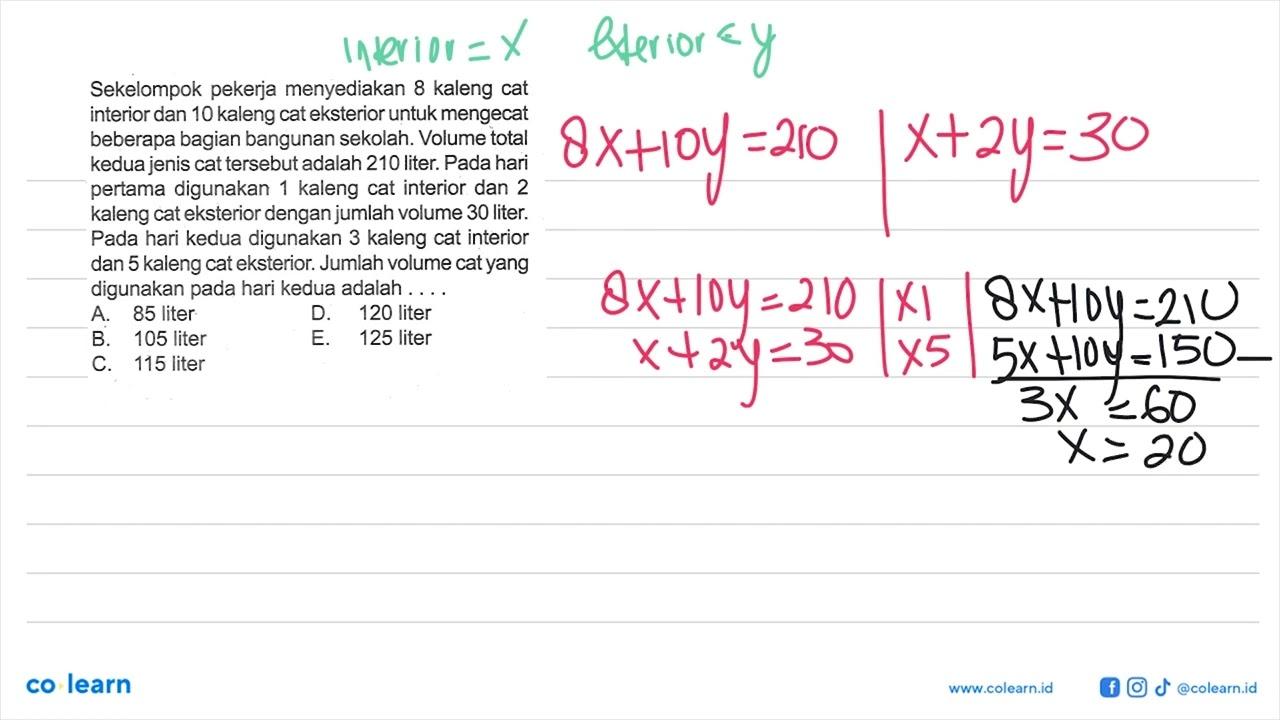 interior = x
exterior = y
Sekelompok pekerja menyediakan 8 kaleng cat
interior dan 10 kaleng cat eksterior untuk mengecat
beberapa bagian bangunan sekolah. Volume total
kedua jenis cat tersebut adalah 210 liter. Pada hari
pertama digunakan 1 kaleng cat interior dan 2
kaleng cat eksterior dengan jumlah volume 30 liter.
Pada hari kedua digunakan 3 kaleng cat interior
dan 5 kaleng cat eksterior. Jumlah volume cat yang
digunakan pada hari kedua adalah . . . .
A. 85 liter D. 120 liter
B. 105 liter E. 125 liter
C. 115 liter
8x+10y=210 | x+2y=30
8x+10y=210 | x1 | 8x+10y=210
x+2y=30 | x5 | 5x+10y=150 –
3x = 60
x = 20
co learn
www.colearn.id @colearn.id